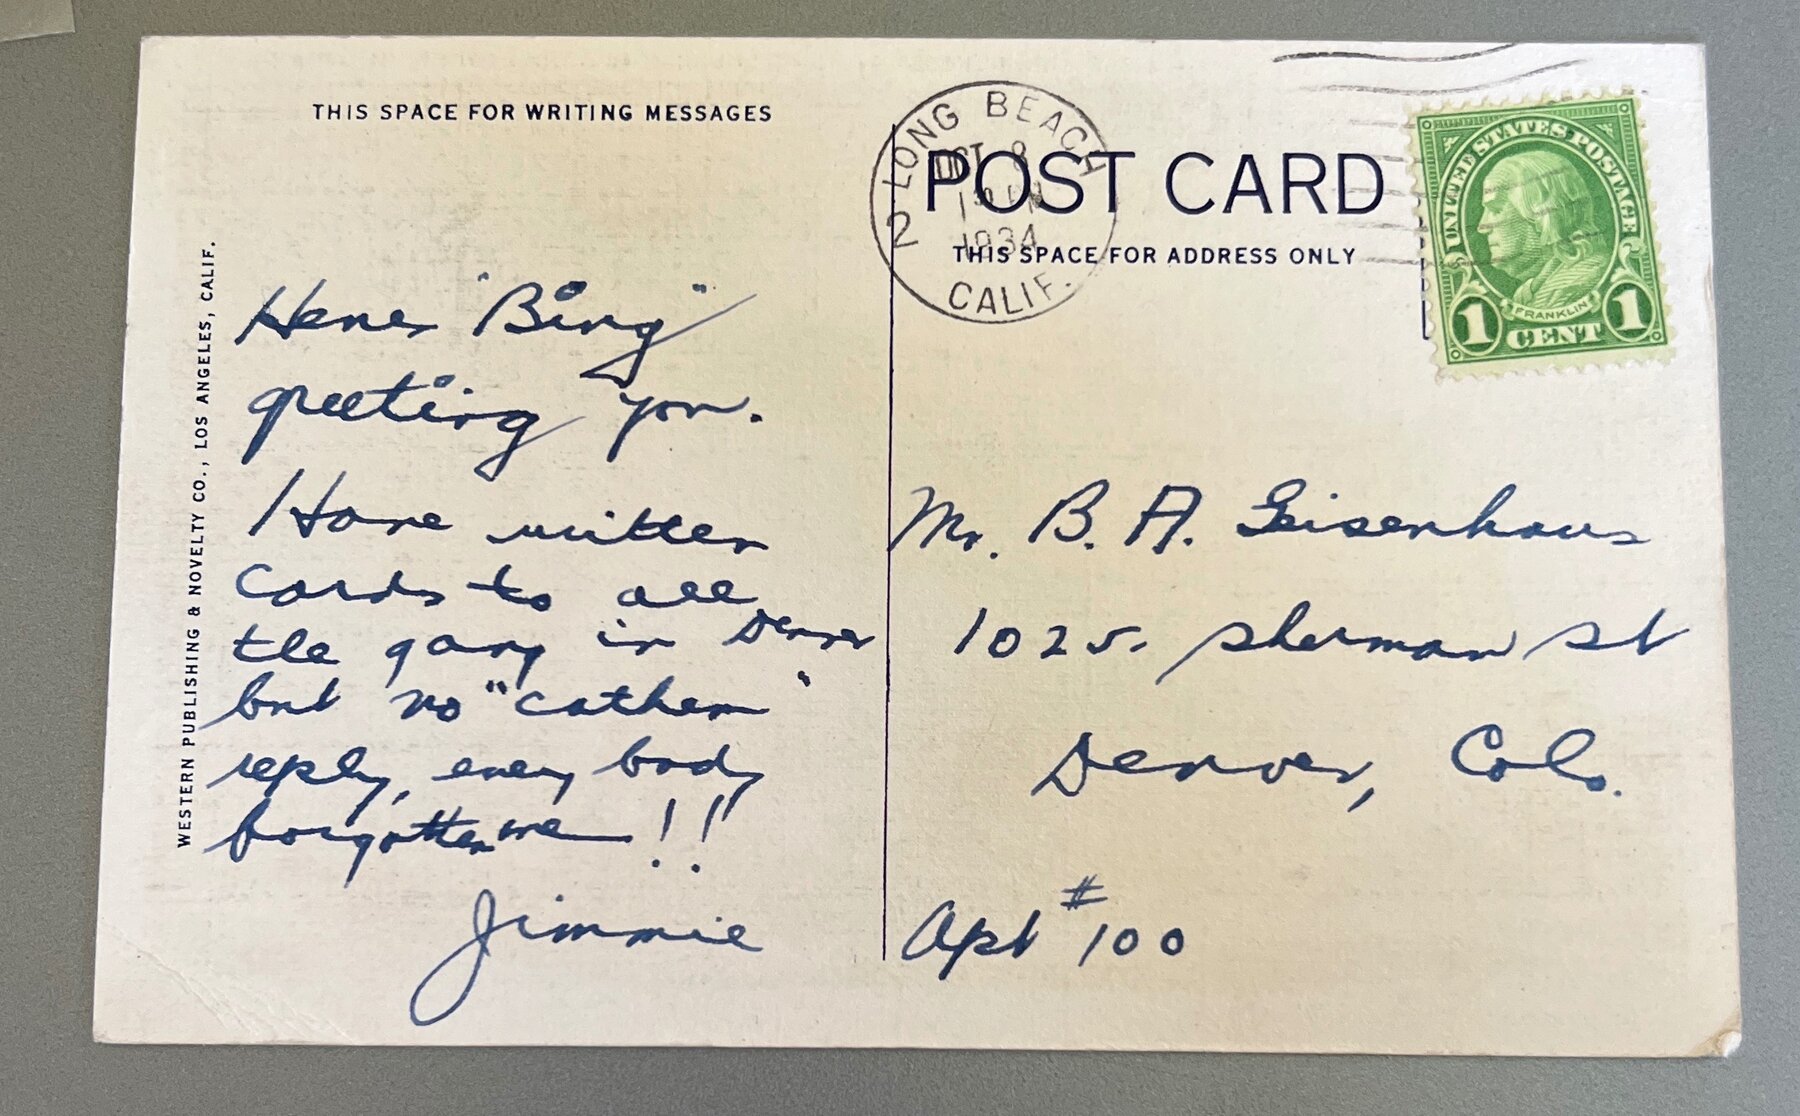 THIS SPACE FOR WRITING MESSAGES
Heres "Bing"
greeting you.
Have written
Cards to all
the gang in Denver
but no "catchem"
reply, every body
forgotten me !!
Jimmie
WESTERN PUBLISHING & NOVELTY CO., LOS ANGELES, CALIF.
LONG BEACH
OCT 8
1934
2
CALIF.
POST CARD
THIS SPACE FOR ADDRESS ONLY
UNITED STATES POSTAGE
FRANKLIN
1 CENT 1
Mr. B. A. Geisenhaus
1025. Sherman St
Denver, Colo.
Apt #100